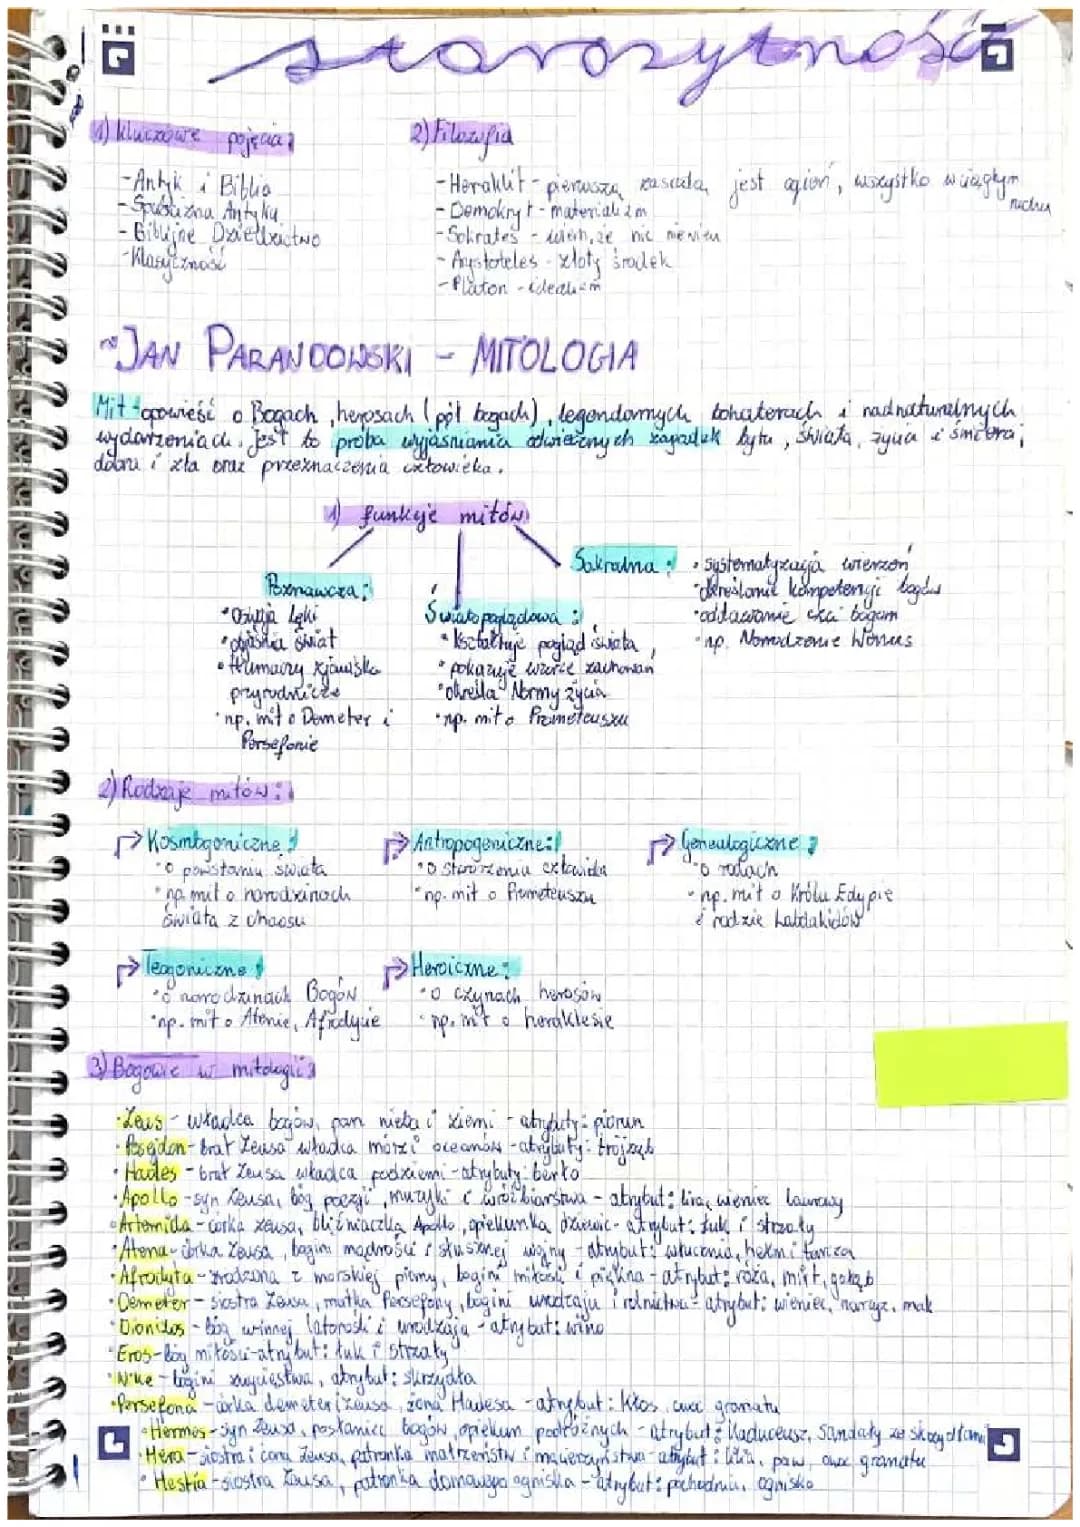 starożytność
1) Kluczowe pojęcia:
- Antyk i Biblia
- Spuścizna Antyku
- Biblijne Dziedzictwo
- Klasyczność
2) Filozofia
- Heraklit - pierwszą zasadą jest ogień, wszystko w ciągłym ruchu
- Demokryt - materializm
- Sokrates - wiem, że nic nie wiem
- Arystoteles - złoty środek
- Platon - idealizm
~JAN PARANDOWSKI - MITOLOGIA
Mit - opowieść o Bogach, herosach (pół bogach), legendarnych bohaterach i nadnaturalnych
wydarzeniach. Jest to próba wyjaśniania odwiecznych zagadek bytu, świata, życia i śmierci,
dobra i zła oraz przeznaczenia człowieka.
1) funkcje mitów:
Poznawcza:
• Oswaja lęki
• objaśnia świat
• tłumaczy zjawiska
przyrodnicze
• np. mit o Demeter i
Persefonie
Światopoglądowa:
• kształtuje pogląd świata,
• pokazuje wzorce zachowań
• określa Normy życia
• np. mit o Prometeuszu
Sakralna:
• systematyzacja wierzeń
• określanie kompetencji bogów
• oddawanie czci bogom
• np. Narodzenie Wenus
2) Rodzaje mitów:
Kosmogoniczne:
• o powstaniu świata
• np. mit o narodzinach
świata z chaosu
Antropogeniczne:
• o stworzeniu człowieka
• np. mit o Prometeuszu
Genealogiczne:
• o rodach
• np. mit o Królu Edypie
i rodzie Labdakidów
Teogoniczne:
• o narodzinach Bogów
• np. mit o Atenie, Afrodycie
Heroiczne:
• o czynach herosów
• np. mit o heraklesie
3) Bogowie w mitologii:
• Zeus - władca bogów, pan nieba i ziemi - atrybuty: piorun
• Posejdon - brat Zeusa władca mórz i oceanów - atrybuty: trójząb
• Hades - brat Zeusa władca podziemi - atrybuty: berło
• Apollo - syn Zeusa, bóg poezji, muzyki i wróżbiarstwa - atrybut: lira, wieniec laurowy
• Artemida - córka zeusa, bliźniaczka Apollo, opiekunka dziewic - atrybut: łuk i strzały
• Atena - córka Zeusa, bogini mądrości i słusznej wojny - atrybut: włócznia, hełm i tarcza
• Afrodyta - zrodzona z morskiej piany, bogini miłości i piękna - atrybut: róża, mirt, gołąb
• Demeter - siostra Zeusa, matka Persefony, bogini urodzaju i rolnictwa - atrybut: wieniec, narcyz, mak
• Dionizos - bóg winnej latorośli i urodzaju - atrybut: wino
• Eros - bóg miłości - atrybut: łuk i strzały
• Nike - bogini zwycięstwa, atrybut: skrzydła
• Persefona - córka demeter i zeusa, żona Hadesa - atrybut: kłos, owoc granatu
• Hermes - syn Zeusa, posłaniec bogów, opiekun podróżnych - atrybut: kaduceusz, sandały ze skrzydłami
• Hera - siostra i żona Zeusa, patronka małżeństw i macierzyństwa - atrybut: lilia, paw, owoc granatu
• Hestia - siostra Zeusa, patronka domowego ogniska - atrybut: pochodnia, ognisko